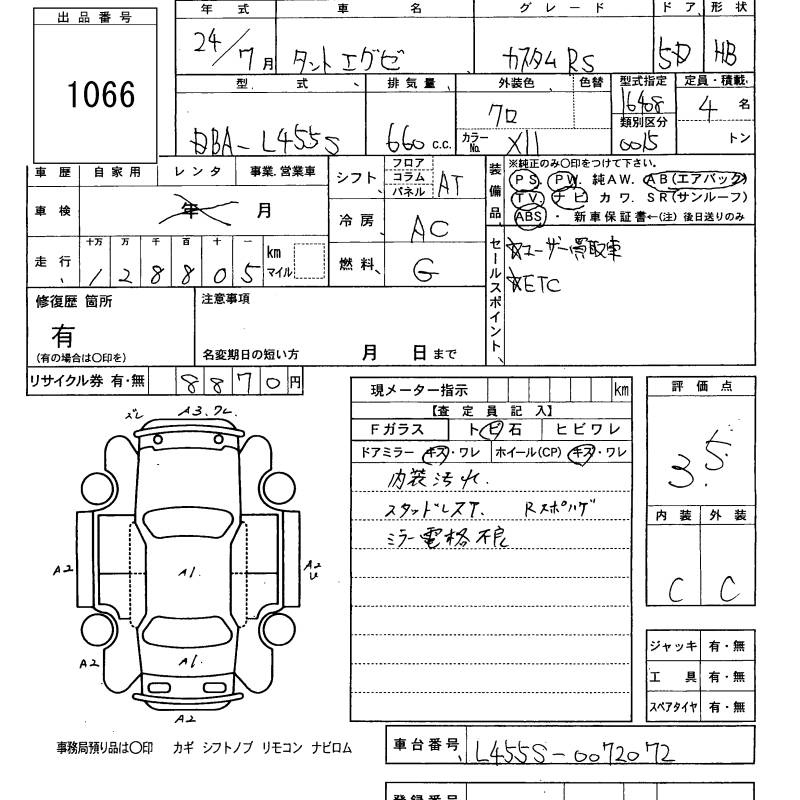 出品番号
1066
年式 車名 グレード ドア 形状
24/7月 タントエグゼ カスタムRS 5D HB
型式 排気量 外装色 色替 型式指定 定員・積載
DBA-L455S 660 c.c. クロ 16408 4名
カラーNo. X11 類別区分 0015 トン
車歴 自家用 レンタ 事業.営業車
車検 年 月
走行 十万 万 千 百 十 一 km マイル
1 2 8 8 0 5
シフト フロア コラム パネル AT
冷房 AC
燃料 G
装備品
※純正のみ〇印をつけて下さい。
PS. PW. 純AW. AB(エアバック)
TV. ナビ カワ. SR(サンルーフ)
ABS ・ 新車保証書←(注) 後日送りのみ
セールスポイント
☆ユーザー買取車
☆ETC
修復歴 箇所
有
(有の場合は〇印を)
注意事項
名変期日の短い方 月 日まで
リサイクル券 有・無 8870円
現メーター指示 km
【査定員記入】
Fガラス トビ石 ヒビワレ
ドアミラー キズ・ワレ ホイール(CP) キズ・ワレ
内装汚れ.
スタッドレスT. Rスポハゲ
ミラー電格不良
評価点
3.5
内装 外装
C C
ジャッキ 有・無
工具 有・無
スペアタイヤ 有・無
ズレ A3.ワレ
A2 A1. A2
A2 A1.
A2
事務局預り品は〇印 カギ シフトノブ リモコン ナビロム
車台番号 L455S-0072072
登録番号